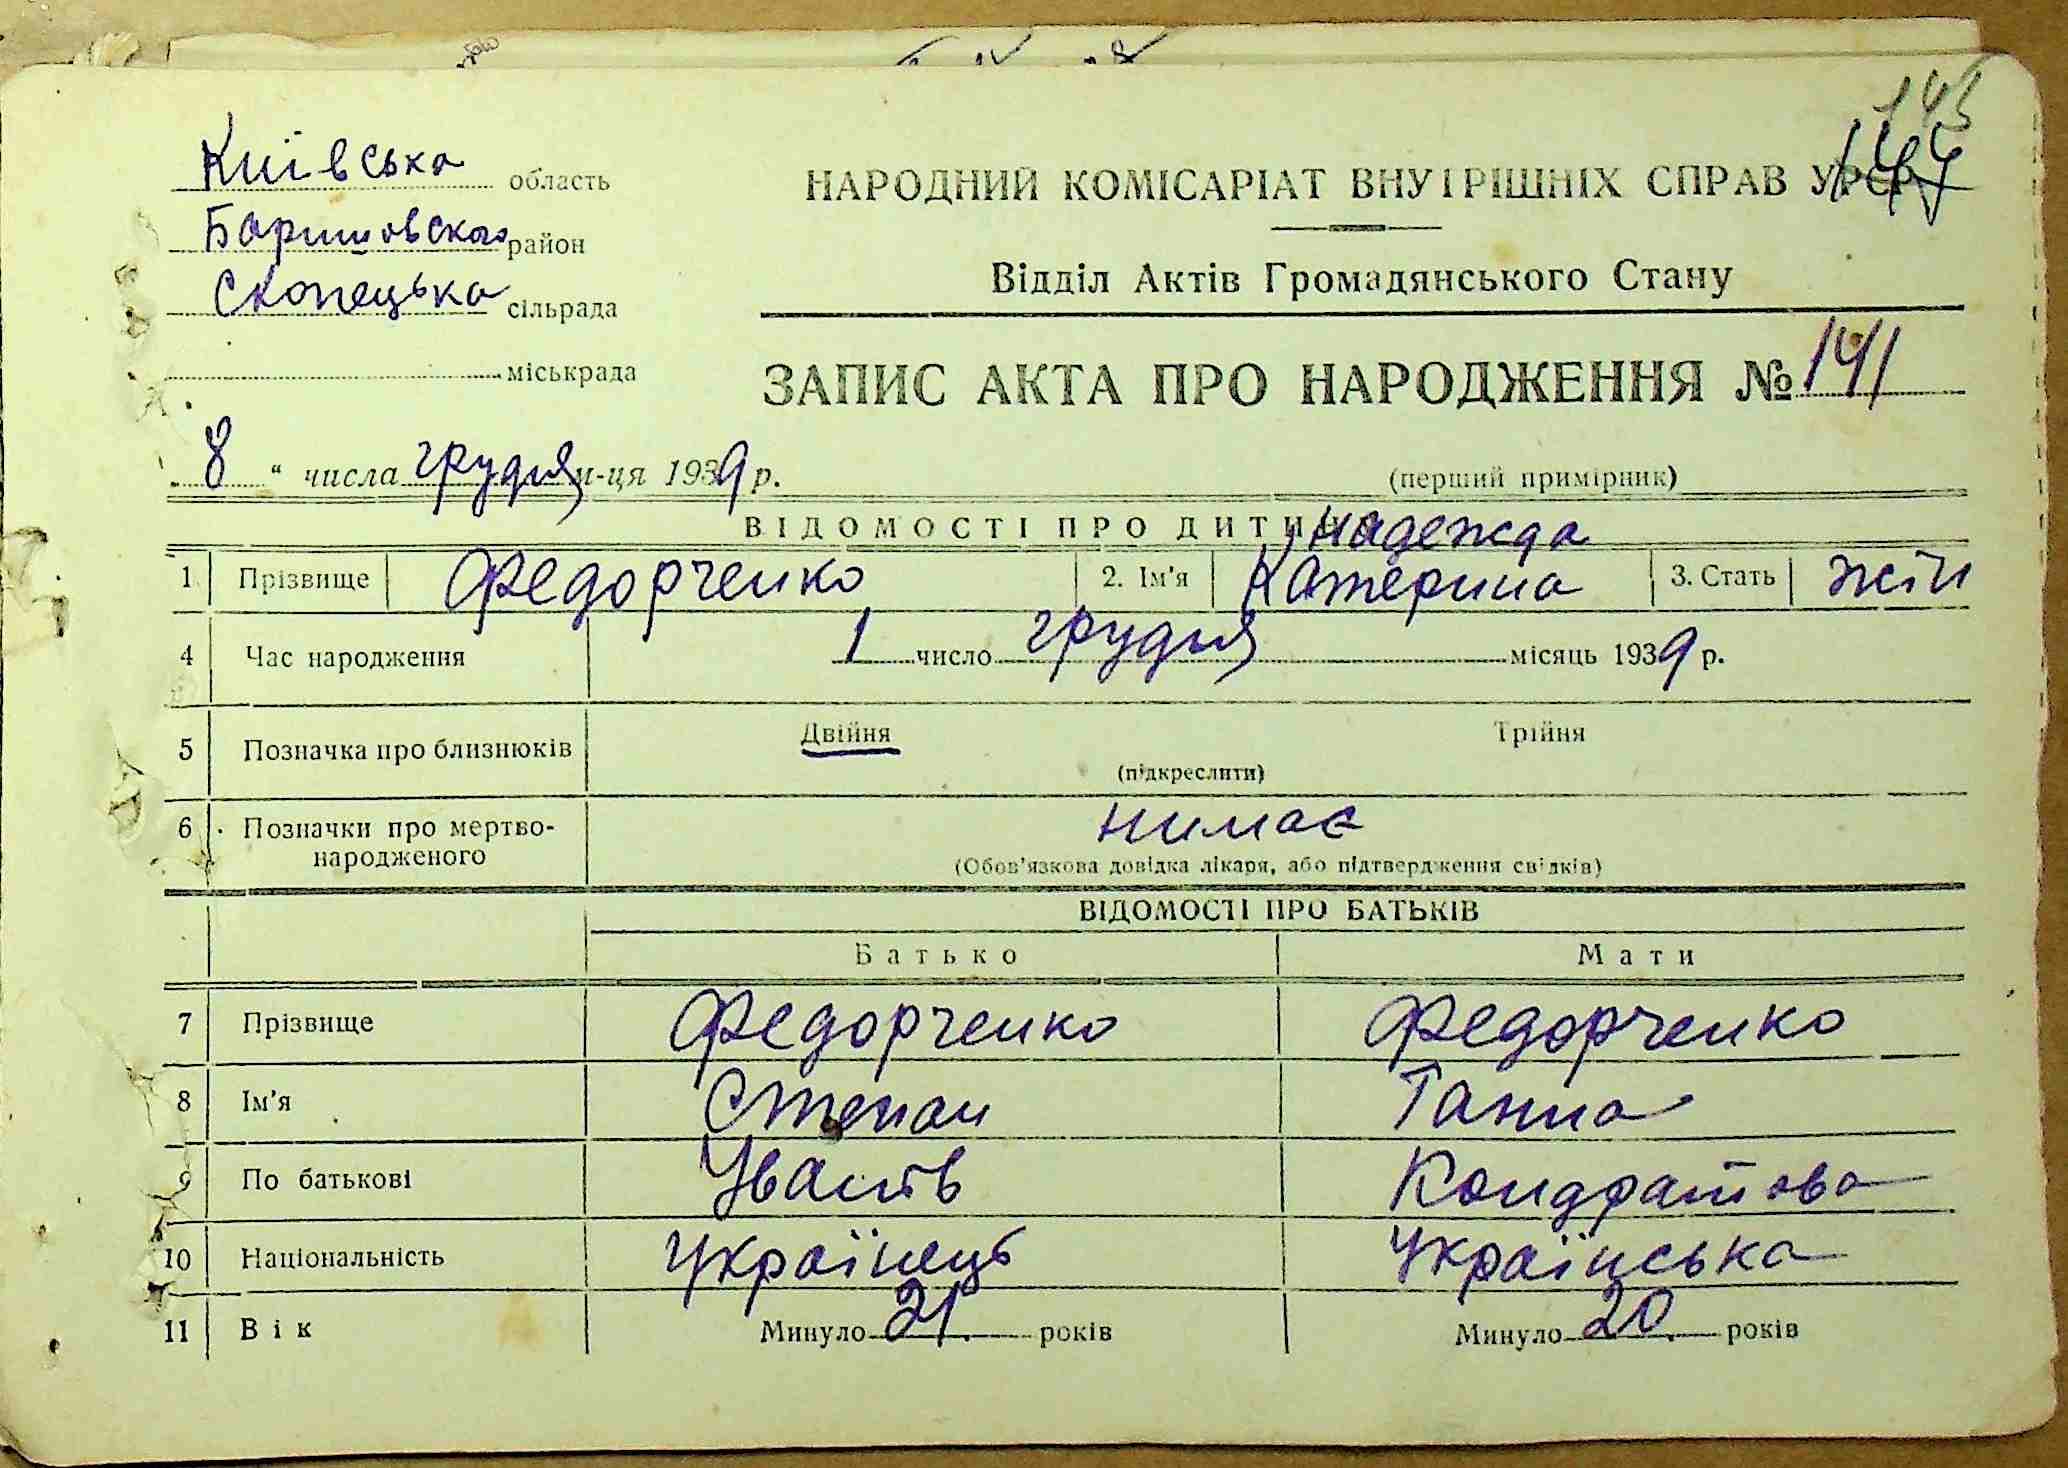 145
144
Київська область
Баришовского район
Скопецька сільрада
міськрада
НАРОДНИЙ КОМІСАРІАТ ВНУТРІШНІХ СПРАВ УРСР
Відділ Актів Громадянського Стану
ЗАПИС АКТА ПРО НАРОДЖЕННЯ № 141
8 " числа грудня м-ця 1939 р.
(перший примірник)
ВІДОМОСТІ ПРО ДИТИНУ
Надежда
1 Прізвище Федорченко 2. Ім'я Катерина 3. Стать жін
4 Час народження 1 число грудня місяць 1939 р.
5 Позначка про близнюків Двійня Трійня
(підкреслити)
6 Позначки про мертво-
народженого
нимає
(Обов'язкова довідка лікаря, або підтвердження свідків)
ВІДОМОСТІ ПРО БАТЬКІВ
Батько Мати
7 Прізвище Федорченко Федорченко
8 Ім'я Степан Ганна
9 По батькові Іванів Кондратова
10 Національність Українець Українська
11 Вік Минуло 21. років Минуло 20. років